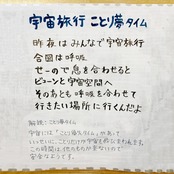 宇宙旅行 ことり夢タイム
昨夜はみんなで宇宙旅行
今回は呼吸
せーので息を合わせると
ビューンと宇宙空間へ
そのあとも呼吸を合わせて
行きたい場所に行くんだよ
解説：ことり夢タイム
宇宙には「ことり夢タイム」があって
この時間は
安全なようです。